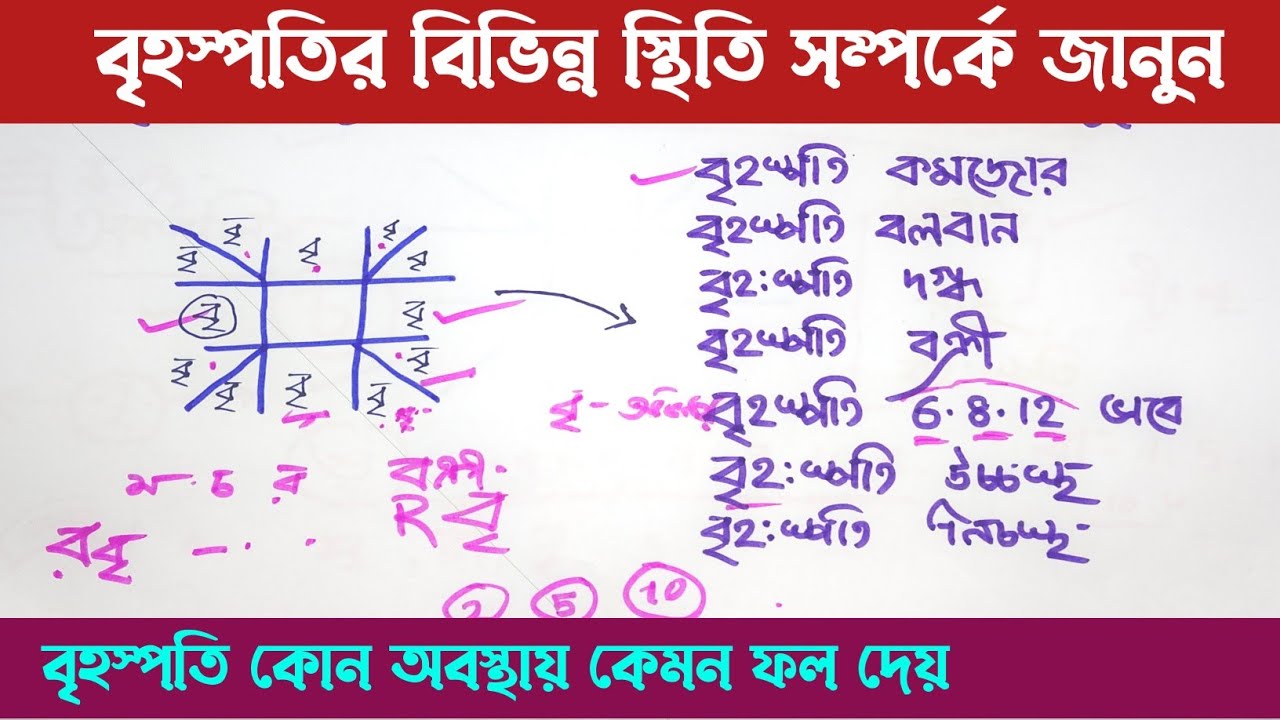 বৃহস্পতির বিভিন্ন স্থিতি সম্পর্কে জানুন
বৃহস্পতি কমজোর
বৃহস্পতি বলবান
বৃহ:স্পতি দগ্ধ
বৃহস্পতি বক্রী
বৃহস্পতি 6.8.12 ভাবে
বৃহ:স্পতি উচ্চস্হ
বৃহ:স্পতি নিচস্হ
বৃ -
ম চ র
বক্রী
R বৃ
র বৃ
5 10
বৃহস্পতি কোন অবস্থায় কেমন ফল দেয়